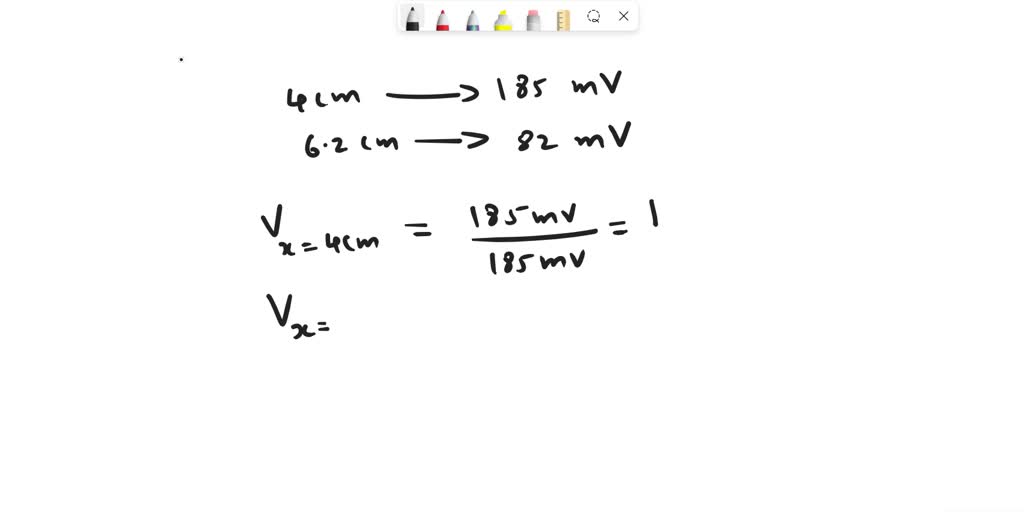 4cm → 185 mV
6.2 cm → 82 mV
V x=4cm = 185mV / 185mV = 1
V x=